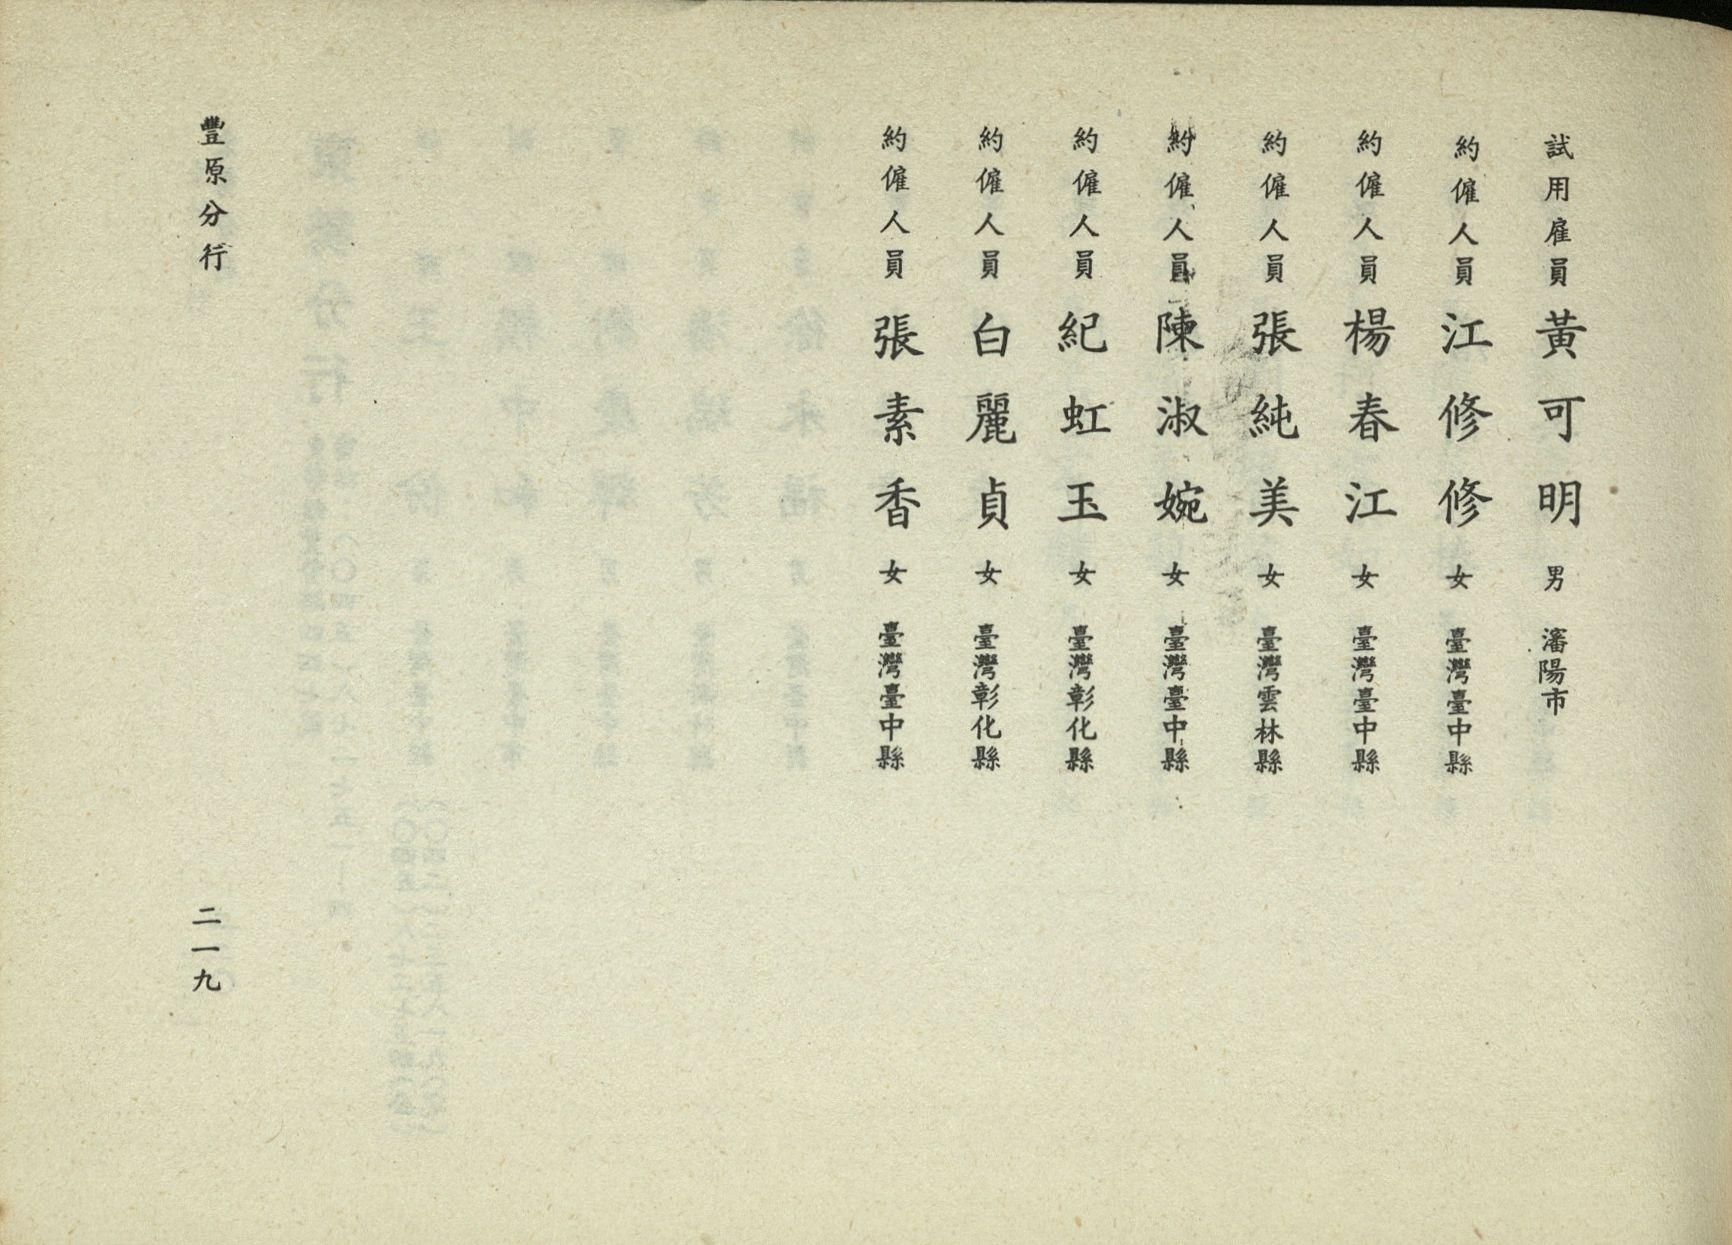 試用雇員黃可明男瀋陽市
約僱人員江修修女臺灣臺中縣
約僱人員楊春江女臺灣臺中縣
約僱人員張純美女臺灣雲林縣
約僱人員陳淑婉女臺灣臺中縣
約僱人員紀虹玉女臺灣彰化縣
約僱人員白麗貞女臺灣彰化縣
約僱人員張素香女臺灣臺中縣
豐原分行
二一九